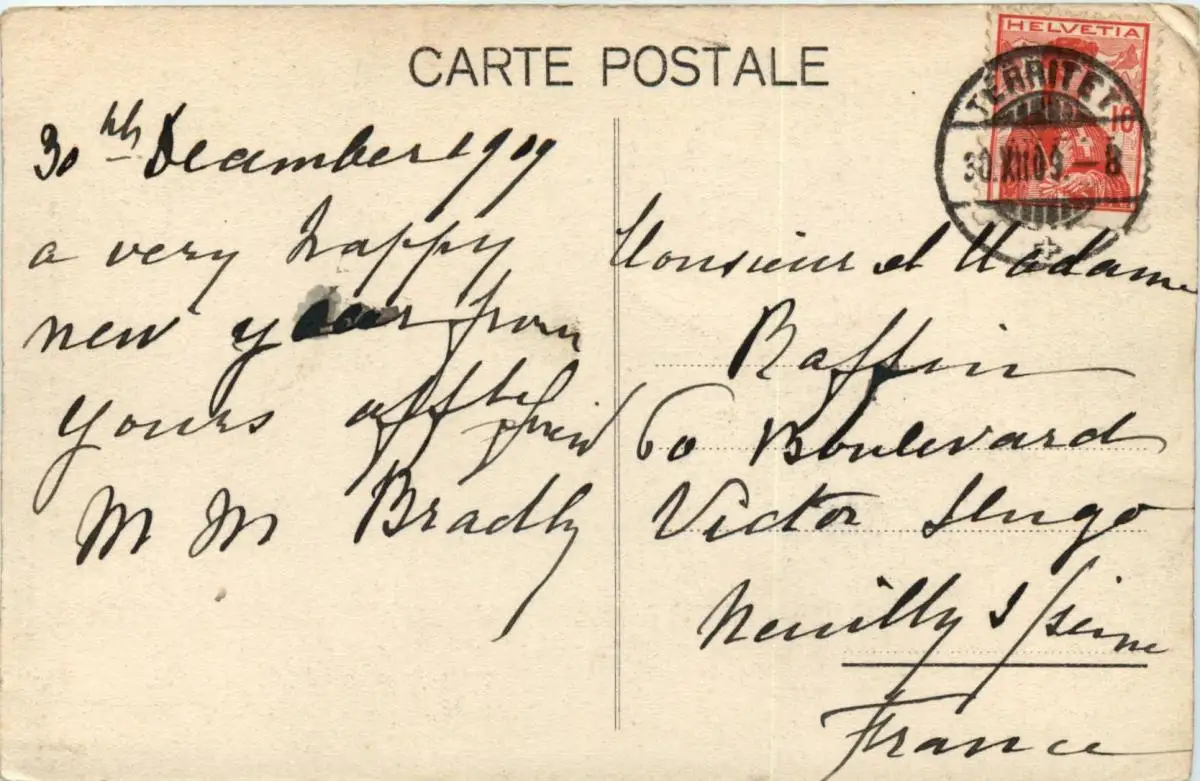 CARTE POSTALE
HELVETIA
10
TERRITET
30.XII09.-8
30th December 1909
a very happy
new year from
yours affte friend
M M Bradly
Monsieur et Madame
Raffin
60 Boulevard
Victor Hugo
Neuilly s/seine
France